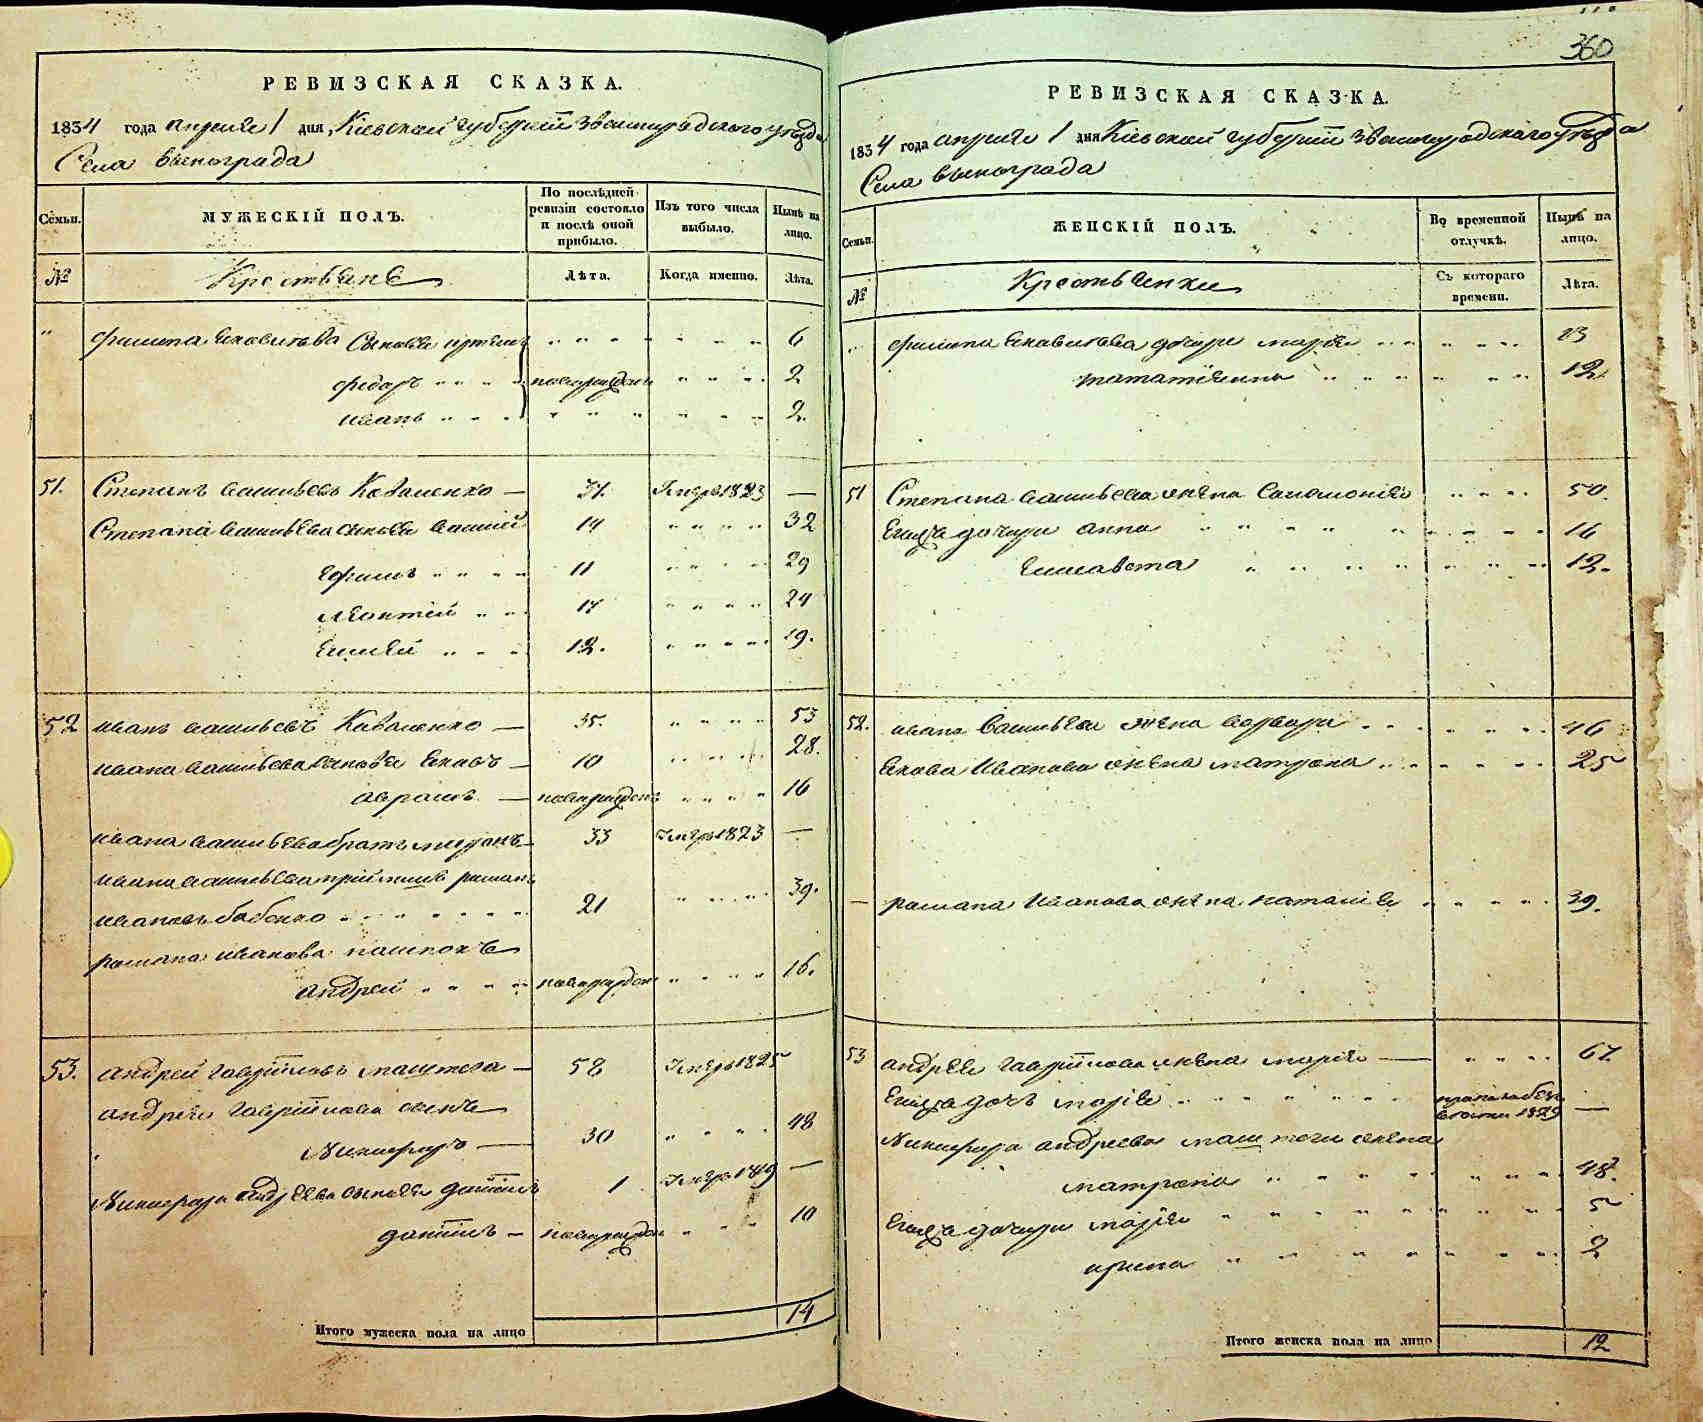 360
РЕВИЗСКАЯ СКАЗКА.
1834 года апреля 1 дня, Кіевской губерніи Звенигородского уезда
Села винограда
Семьи. МУЖЕСКІЙ ПОЛЪ. По послѣдней ревизіи состояло и послѣ оной прибыло. Изъ того числа выбыло. Нынѣ на лицо.
№ Крестьяне Лѣта. Когда именно. Лѣта.
филипа Сыновья 6
федоръ новорожден 2
иванъ 2
51. Степанъ васильевъ Коваленко — 31. 1823 —
Степана васильева сыновья василій 14 32
Ефимъ 11 29
леонтій 24
Елисей 12. 19.
52 иванъ васильевъ Коваленко — 35. 53
ивана васильева сыновья Ековъ — 10 28.
аврамъ — новорожденъ 16
ивана васильева братъ 33 1823 —
ивана васильева пріймишъ романъ
ивановъ бабенко 21 39.
романа иванова пасинокъ
андрей новорожден 16.
53. андрей гаврііловъ — 58 1825
андрея гавріілова сынъ
Никифоръ — 30 48
Никифора андреева сыновья даніилъ 1 1819 —
даніилъ — новорожден 10
Итого мужеска пола на лицо 14
РЕВИЗСКАЯ СКАЗКА.
1834 года апреля 1 дня Кіевской губерніи Звенигородскаго уезда
Села винограда
Семьи. ЖЕНСКІЙ ПОЛЪ. Во временной отлучкѣ. Нынѣ на лицо.
№ Крестьянки Съ котораго времени. Лѣта.
филипа дочери марія 13
татаіянна 12
51 Степана васильева жена Соломонія 50.
Егожъ дочери анна 16
Елисавета 12.
52. ивана Васильева жена варвара 46
Екова Иванова жена матрона 25
— романа Иванова жена наталія 39.
53 андрея гавріілова жена марія — 67.
Егожъ дочь марія 1829 —
Никифора андреева жена
матрона 48.
Егожъ дочери марія 5
ирина 2
Итого женска пола на лицо 12